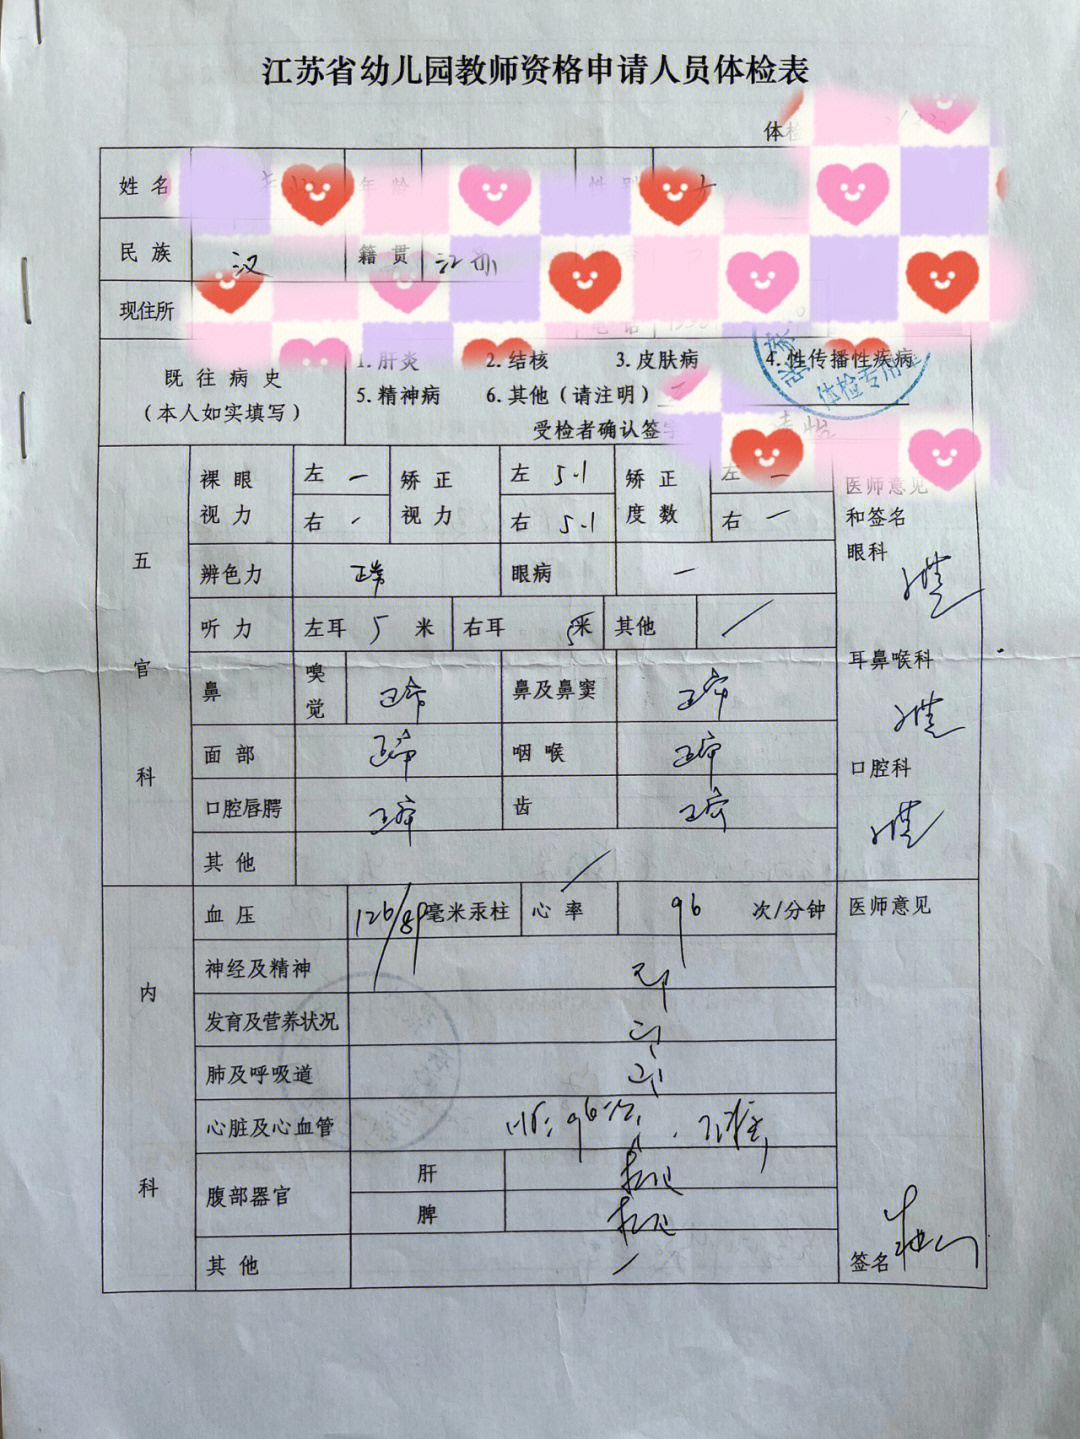 江苏省幼儿园教师资格申请人员体检表
体检
姓 名 年 龄 性 别
民 族 汉 籍 贯 江苏
现住所
既 往 病 史
(本人如实填写)
1. 肝炎 2. 结核 3. 皮肤病 4. 性传播性疾病
5. 精神病 6. 其他(请注明)
受检者确认签字
体检专用章
五官科
裸眼视力 左 — 右 —
矫正视力 左 5.1 右 5.1
矫正度数 左 — 右 —
医师意见和签名
眼科
辨色力 正常 眼病 —
听 力 左耳 5 米 右耳 5 米 其他 /
鼻 嗅觉 正常 鼻及鼻窦 正常
耳鼻喉科
面 部 正常 咽 喉 正常
口腔科
口腔唇腭 正常 齿 正常
其 他 /
内科
血 压 126/89 毫米汞柱 心 率 96 次/分钟 医师意见
神经及精神
发育及营养状况
肺及呼吸道
心脏及心血管 96次
腹部器官 肝
脾
其 他 /
签名